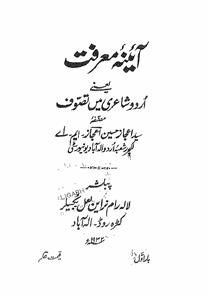 آئینۂ معرفت
یعنے
اردو شاعری میں تصوف
مصنفہ
سید اعجاز حسین اعجاز۔ ایم۔ اے
لکچرر شعبۂ اردو الہ آباد یونیورسٹی
پبلشر
لالہ رام نراین لعل بکسیلر
کٹرہ روڈ۔ الہ آباد
۱۹۳۴ء
بار اول
قیمت